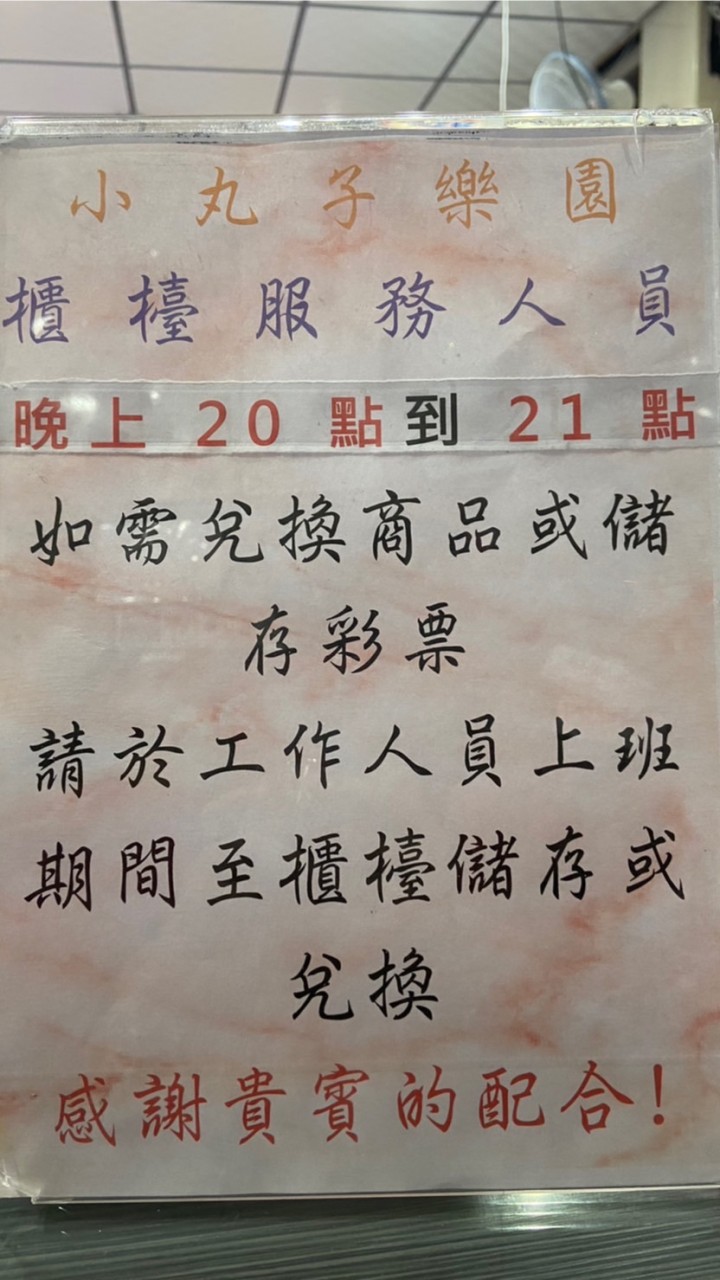 小丸子樂園
櫃檯服務人員
晚上 20 點到 21 點
如需兌換商品或儲
存彩票
請於工作人員上班
期間至櫃檯儲存或
兌換
感謝貴賓的配合!